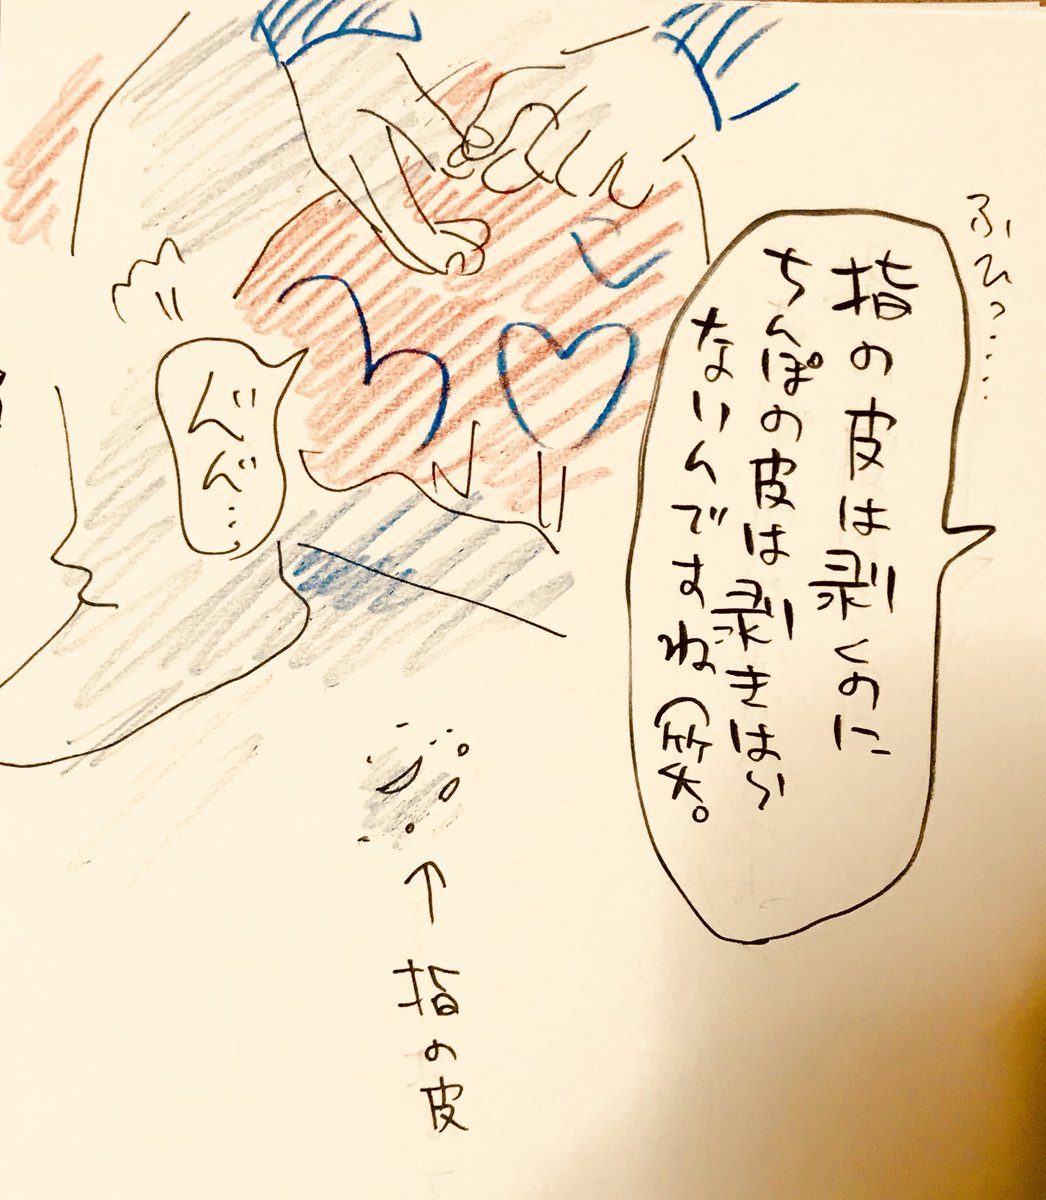 ふひっ……
指の皮は剥くのに
ちんぽの皮は剥きはら
ないんですね(笑)。
べべ…
↑指の皮